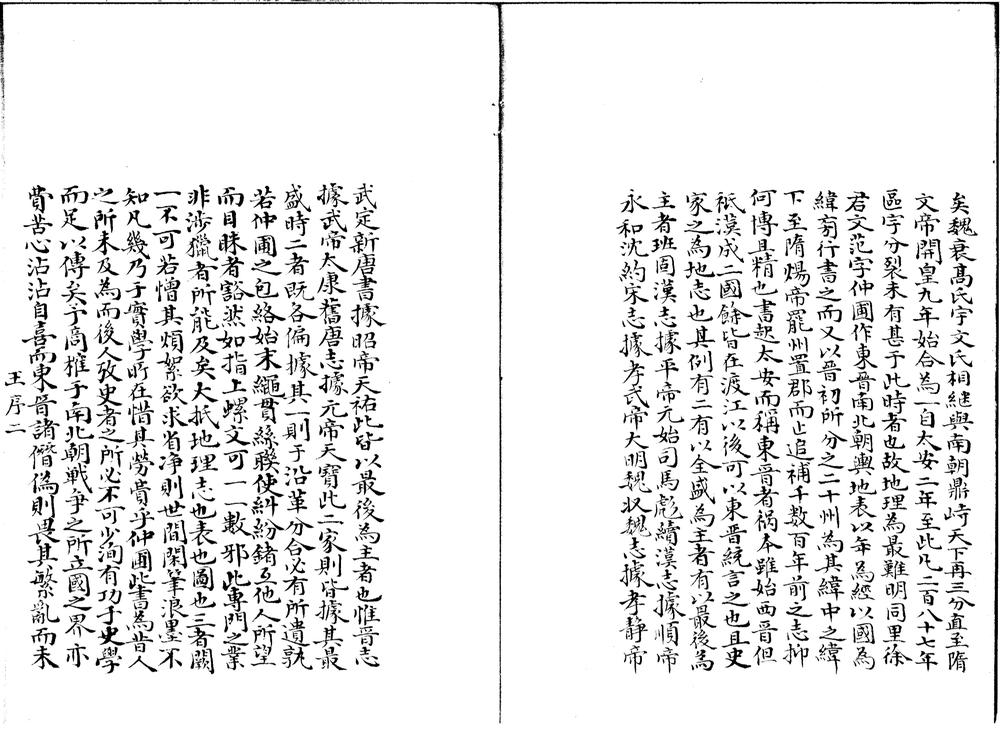 矣魏衰髙氏宇文氏相繼與南朝鼎峙天下再三分直至隋
文帝開皇九年始合為一自太安二年至此凡二百八十七年
區宇分裂未有甚于此時者也故地理為最難明同里徐
君文范字仲圃作東晋南北朝輿地表以年為經以國為
緯旁行書之而又以晋初所分之二十州為其緯中之緯
下至隋煬帝罷州置郡而止追補千數百年前之志抑
何博且精也書起太安而稱東晋者祸夲雖始西晋但
祇漢成二國餘皆在渡江以後可以東晋統言之也且史
家之為地志也其例有二有以全盛為主者有以最後為
主者班固漢志據平帝元始司馬彪續漢志據順帝
永和沈約宋志據孝武帝大明魏収魏志據孝靜帝
武定新唐書據昭帝天祐此皆以最後為主者也惟晋志
據武帝太康舊唐志據元帝天寶此二家則皆據其最
盛時二者既各偏據其一則于沿革分合必有所遺孰
若仲圃之包絡始末繩貫絲聯使糾紛錯互他人所望
而目眯者豁然如指上螺文可一一數邪此專門之業
非涉獵者所能及矣大抵地理志也表也圖也三者闕
一不可若憎其煩絮欲求省净則世間閑筆浪墨不
知凡幾乃于實學所在惜其勞貴乎仲圃此書為昔人
之所未及為而後人攷史者之所必不可少洵有功于史學
而足以傳矣予啇榷于南北朝戰争之所立國之界亦
費苦心沾沾自喜而東晋諸僭偽則畏其繁亂而未
王序二